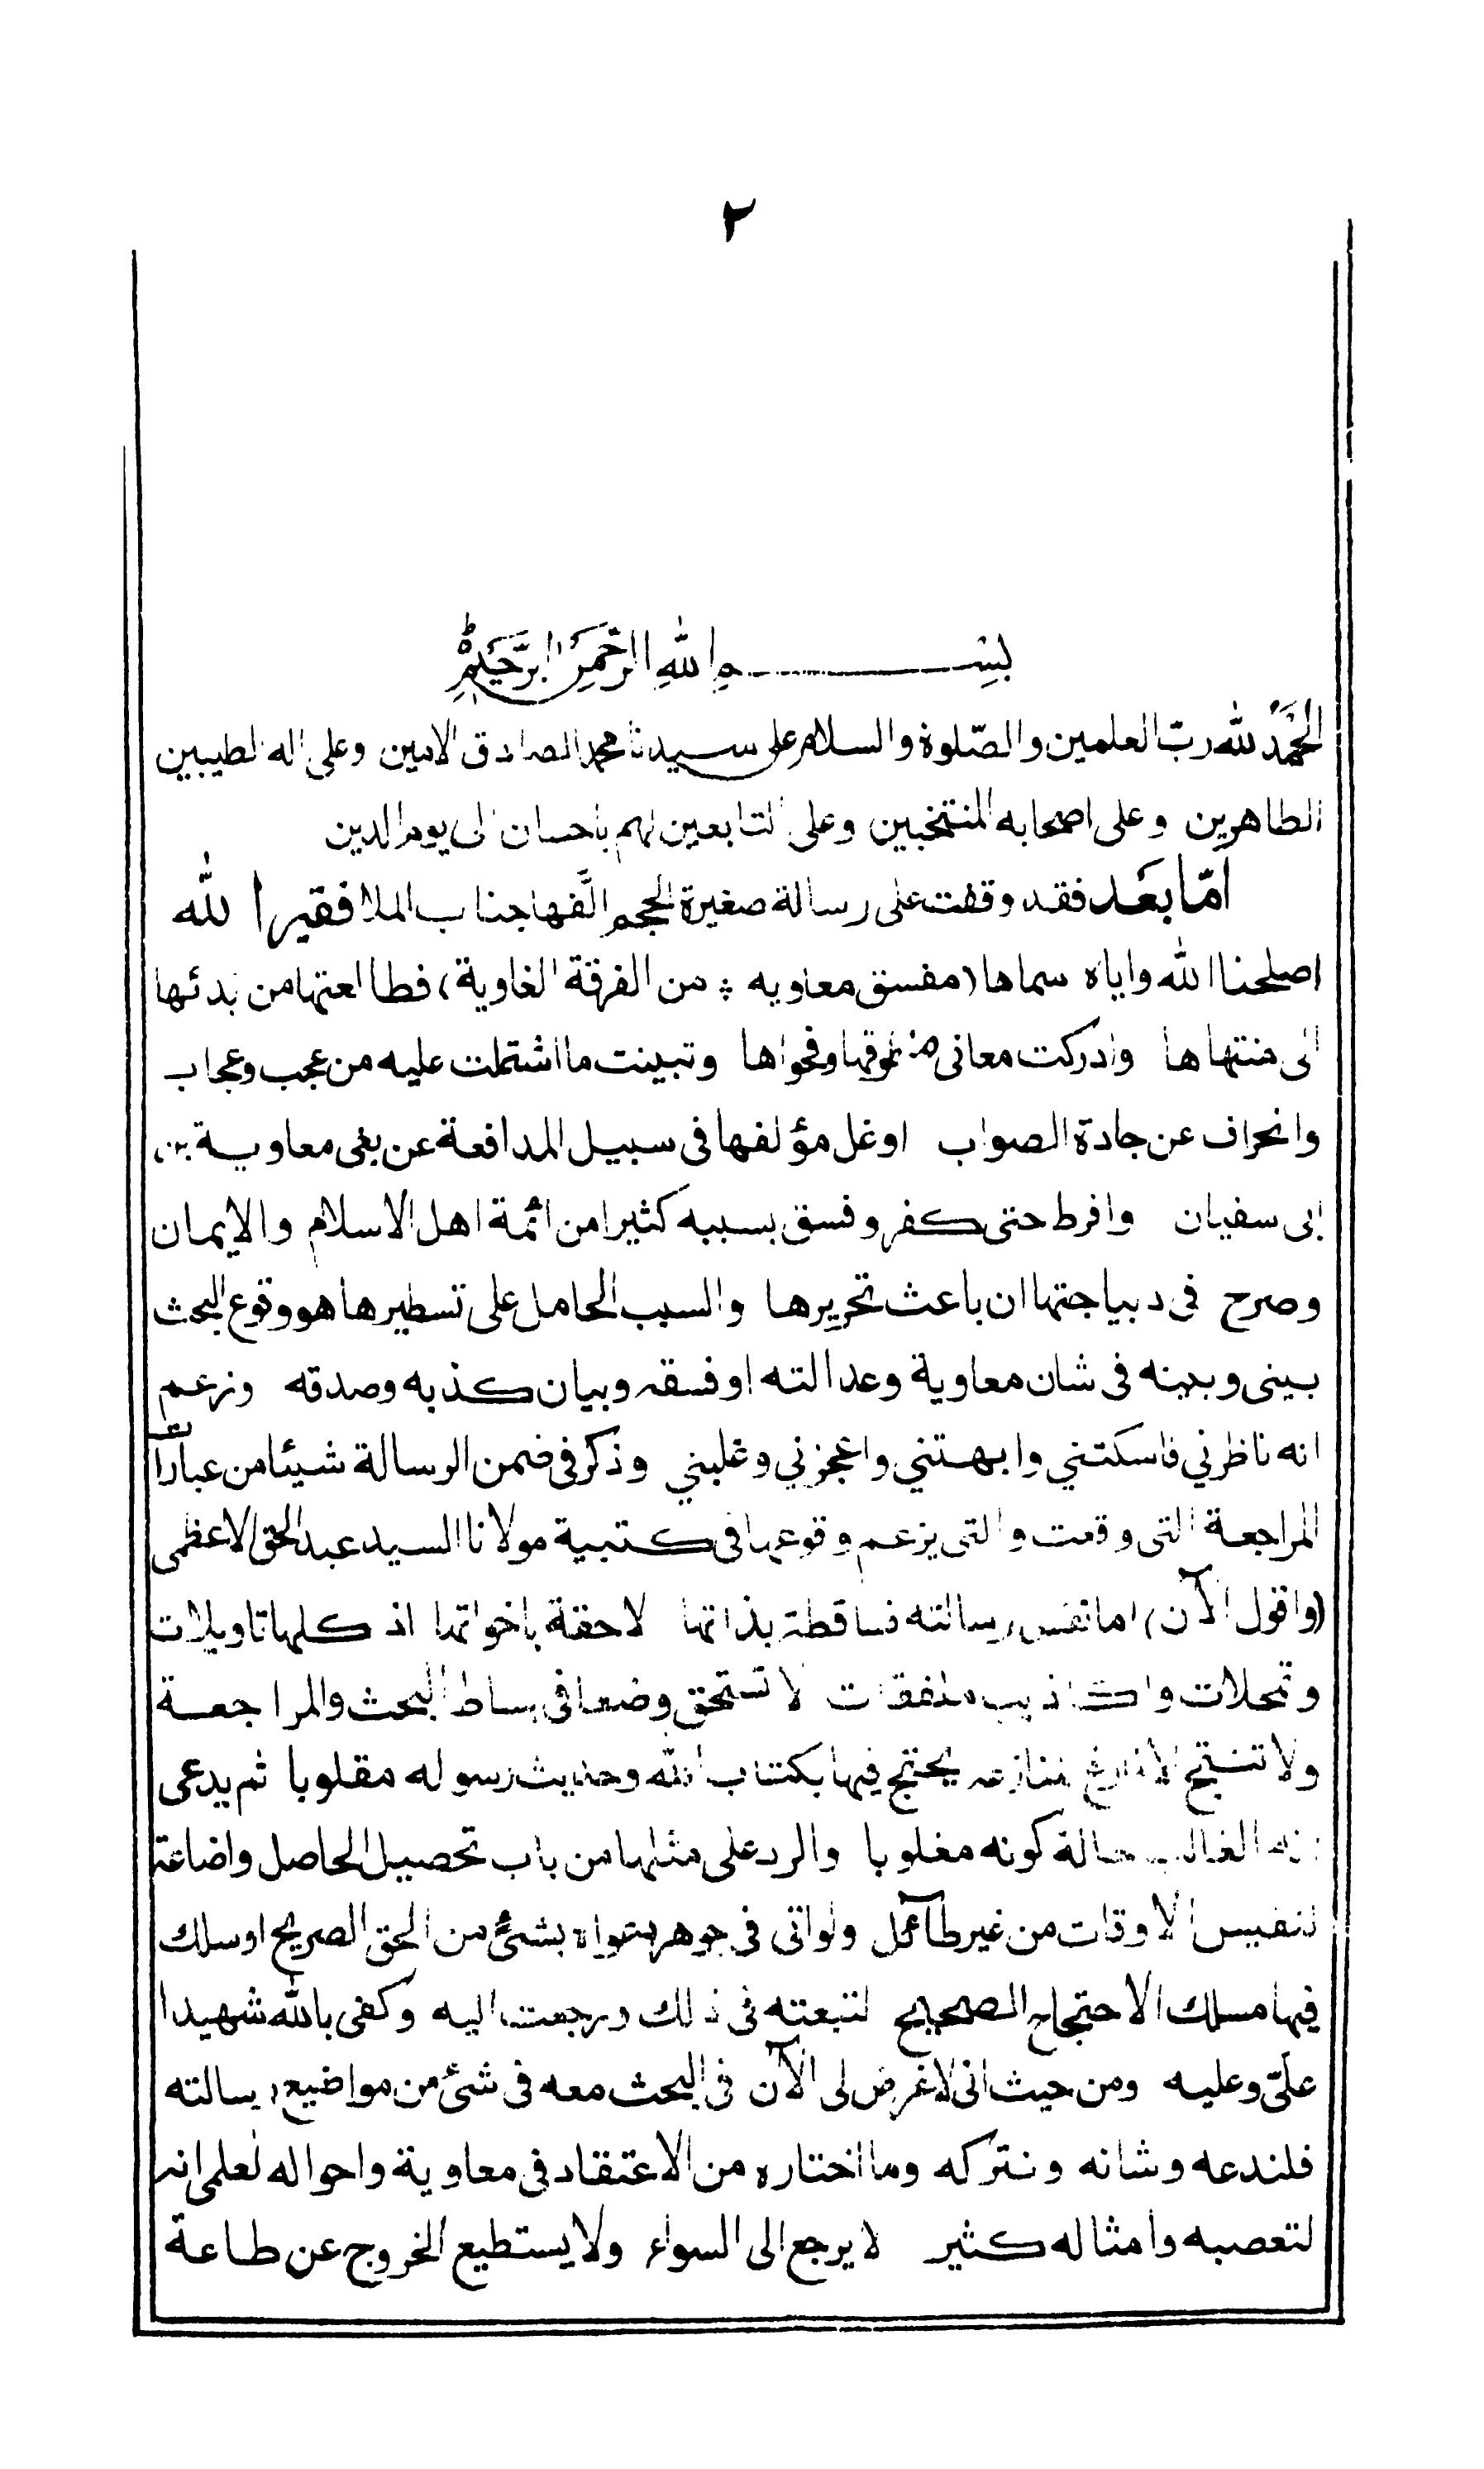 ٢
بسم الله الرحمن الرحيم
الحمد لله رب العلمين والصّلوة والسلام على سيدنا محمد الصادق الامين وعلى اله الطيبين
الطاهرين وعلى اصحابه المنتخبين وعلى التابعين لهم باحسان الى يوم الدين
امّا بعد فقد وقفت على رسالة صغيرة الحجم الّفها جناب الملا فقير الله
اصلحنا الله واياه سماها (مفسق معاويه ؞ من الفرقة الغاوية) فطالعتها من بدئها
الى منتهاها وادركت معانى منطوقها وفحواها وتبينت ما اشتملت عليه من عجب وعجاب
وانحراف عن جادة الصواب اوغل مؤلفها فى سبيل المدافعة عن بغى معاوية بن
ابى سفيان وافرط حتى كفر وفسق بسببه كثيرا من ائمة اهل الاسلام والايمان
وصرح فى ديباجتها ان باعث تحريرها والسبب الحامل على تسطيرها هو وقوع البحث
بينى وبينه فى شان معاوية وعدالته او فسقه وبيان كذبه وصدقه وزعم
انه ناظرني فاسكتني وابهتني واعجزني وغلبني وذكر فى ضمن الرسالة شيئا من عبارات
المراجعة التى وقعت والتى يزعم وقوعها فى كتبية مولانا السيد عبد الحق الاعظمى
(واقول الآن) اما نفس رسالته فساقطة بذاتها لاحقة باخواتها اذ كلها تاويلات
وتمحلات واكاذيب ملفقات لا تستحق وضعا فى بساط البحث والمراجعة
ولا تنتج الا منازعه يحتج فيها بكتاب الله وحديث رسوله مقلوبا ثم يدعى
انه الغالب حالة كونه مغلوبا والرد على مثلها من باب تحصيل الحاصل واضاعة
لنفيس الاوقات من غير طآئل ولو اتى فى جوهر دعواه بشئ من الحق الصريح او سلك
فيها مسلك الاحتجاج الصحيح لتبعته فى ذلك ورجعت اليه وكفى بالله شهيدا
علىّ وعليه ومن حيث انى لا غرض لى الآن فى البحث معه فى شئ من مواضيع رسالته
فلندعه وشانه ونتركه وما اختاره من الاعتقاد فى معاوية واحواله لعلمى انه
لتعصبه وامثاله كثير لا يرجع الى السواء ولا يستطيع الخروج عن طاعة